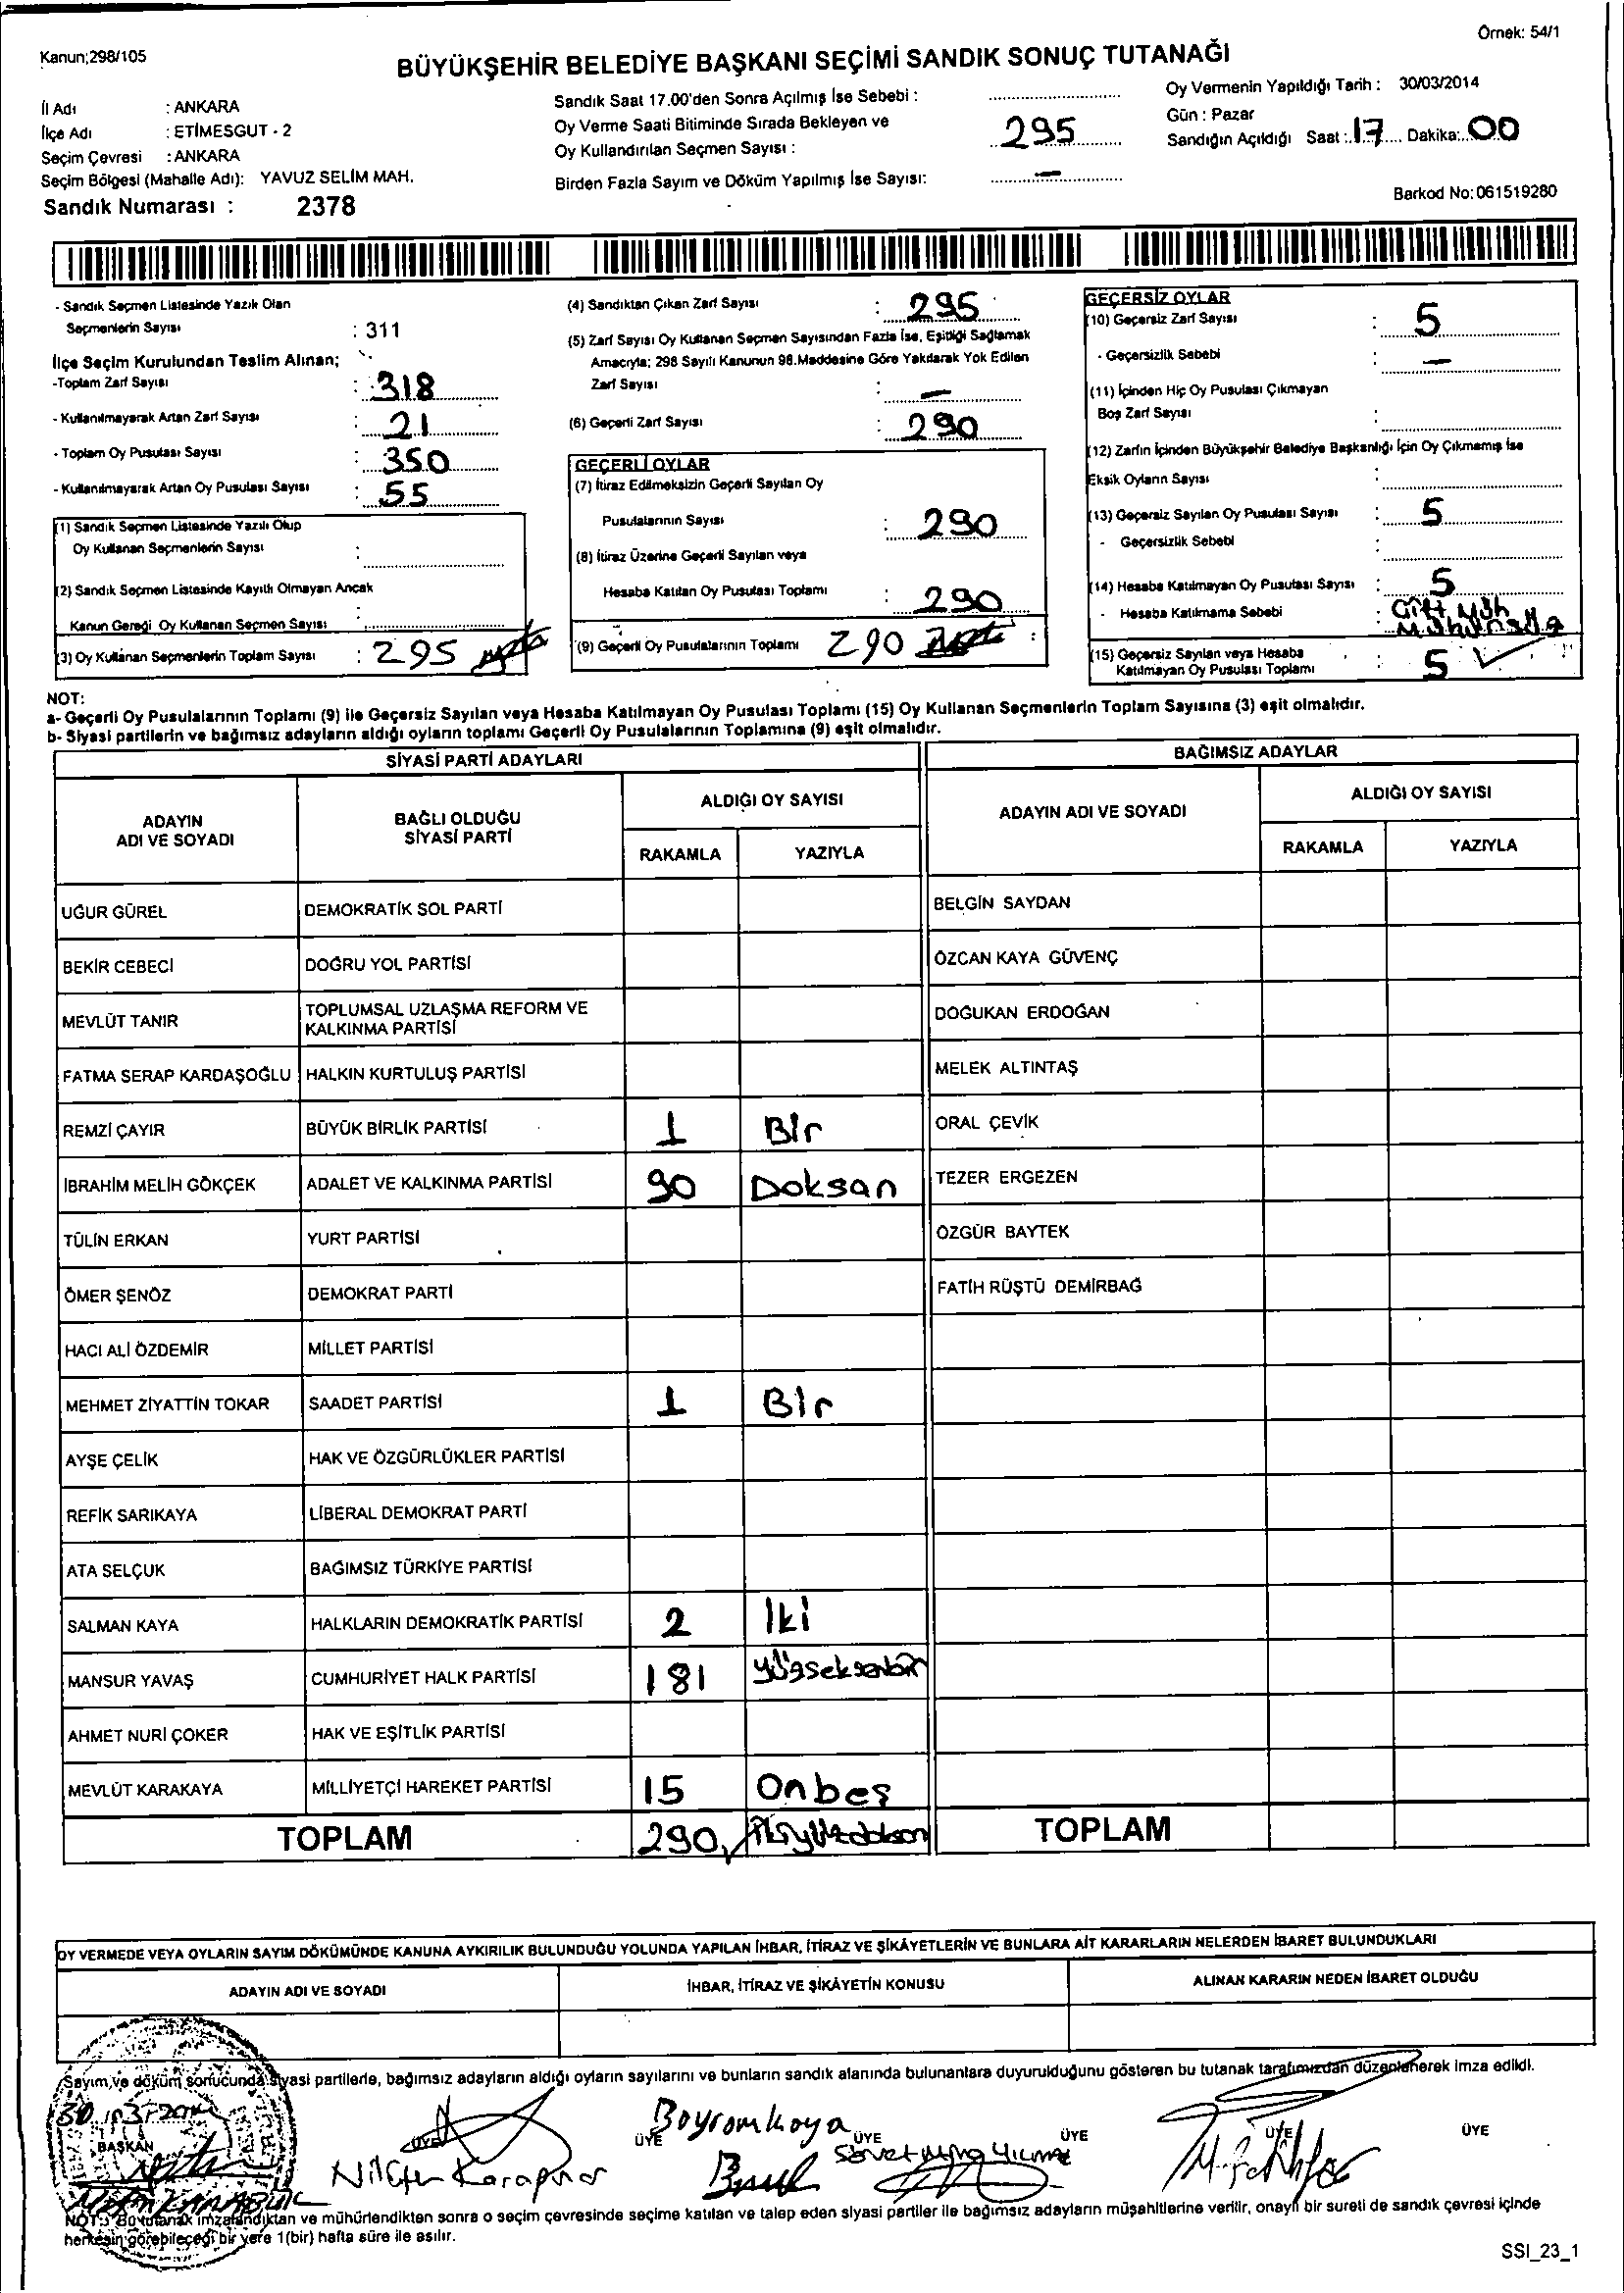 Örnek: 54/1
Kanun;298/105
BÜYÜKŞEHİR BELEDİYE BAŞKANI SEÇİMİ SANDIK SONUÇ TUTANAĞI
İl Adı : ANKARA
İlçe Adı : ETİMESGUT - 2
Seçim Çevresi : ANKARA
Seçim Bölgesi (Mahalle Adı): YAVUZ SELİM MAH.
Sandık Numarası : 2378
Sandık Saat 17.00'den Sonra Açılmış İse Sebebi :
Oy Verme Saati Bitiminde Sırada Bekleyen ve
Oy Kullandırılan Seçmen Sayısı : 295
Birden Fazla Sayım ve Döküm Yapılmış İse Sayısı: —
Oy Vermenin Yapıldığı Tarih : 30/03/2014
Gün : Pazar
Sandığın Açıldığı Saat : 17 Dakika: 00
Barkod No: 061519280
- Sandık Seçmen Listesinde Yazılı Olan
Seçmenlerin Sayısı : 311
İlçe Seçim Kurulundan Teslim Alınan;
-Toplam Zarf Sayısı : 318
- Kullanılmayarak Artan Zarf Sayısı : 21
- Toplam Oy Pusulası Sayısı : 350
- Kullanılmayarak Artan Oy Pusulası Sayısı : 55
(1) Sandık Seçmen Listesinde Yazılı Olup
Oy Kullanan Seçmenlerin Sayısı :
(2) Sandık Seçmen Listesinde Kayıtlı Olmayan Ancak
Kanun Gereği Oy Kullanan Seçmen Sayısı :
(3) Oy Kullanan Seçmenlerin Toplam Sayısı : 295
(4) Sandıktan Çıkan Zarf Sayısı : 295
(5) Zarf Sayısı Oy Kullanan Seçmen Sayısından Fazla İse, Eşitliği Sağlamak
Amacıyla; 298 Sayılı Kanunun 98.Maddesine Göre Yakılarak Yok Edilen
Zarf Sayısı : —
(6) Geçerli Zarf Sayısı : 290
GEÇERLİ OYLAR
(7) İtiraz Edilmeksizin Geçerli Sayılan Oy
Pusulalarının Sayısı : 290
(8) İtiraz Üzerine Geçerli Sayılan veya
Hesaba Katılan Oy Pusulası Toplamı : 290
(9) Geçerli Oy Pusulalarının Toplamı 290 :
GEÇERSİZ OYLAR
(10) Geçersiz Zarf Sayısı : 5
- Geçersizlik Sebebi : —
(11) İçinden Hiç Oy Pusulası Çıkmayan
Boş Zarf Sayısı :
(12) Zarfın İçinden Büyükşehir Belediye Başkanlığı İçin Oy Çıkmamış İse
Eksik Oyların Sayısı :
(13) Geçersiz Sayılan Oy Pusulası Sayısı : 5
- Geçersizlik Sebebi :
(14) Hesaba Katılmayan Oy Pusulası Sayısı : 5
- Hesaba Katılmama Sebebi :
(15) Geçersiz Sayılan veya Hesaba
Katılmayan Oy Pusulası Toplamı : 5
NOT:
a- Geçerli Oy Pusulalarının Toplamı (9) ile Geçersiz Sayılan veya Hesaba Katılmayan Oy Pusulası Toplamı (15) Oy Kullanan Seçmenlerin Toplam Sayısına (3) eşit olmalıdır.
b- Siyasi partilerin ve bağımsız adayların aldığı oyların toplamı Geçerli Oy Pusulalarının Toplamına (9) eşit olmalıdır.
SİYASİ PARTİ ADAYLARI
ADAYIN
ADI VE SOYADI
BAĞLI OLDUĞU
SİYASİ PARTİ
ALDIĞI OY SAYISI
RAKAMLA YAZIYLA
UĞUR GÜREL DEMOKRATİK SOL PARTİ
BEKİR CEBECİ DOĞRU YOL PARTİSİ
MEVLÜT TANIR TOPLUMSAL UZLAŞMA REFORM VE
KALKINMA PARTİSİ
FATMA SERAP KARDAŞOĞLU HALKIN KURTULUŞ PARTİSİ
REMZİ ÇAYIR BÜYÜK BİRLİK PARTİSİ 1 Bir
İBRAHİM MELİH GÖKÇEK ADALET VE KALKINMA PARTİSİ 90 Doksan
TÜLİN ERKAN YURT PARTİSİ
ÖMER ŞENÖZ DEMOKRAT PARTİ
HACI ALİ ÖZDEMİR MİLLET PARTİSİ
MEHMET ZİYATTİN TOKAR SAADET PARTİSİ 1 Bir
AYŞE ÇELİK HAK VE ÖZGÜRLÜKLER PARTİSİ
REFİK SARIKAYA LİBERAL DEMOKRAT PARTİ
ATA SELÇUK BAĞIMSIZ TÜRKİYE PARTİSİ
SALMAN KAYA HALKLARIN DEMOKRATİK PARTİSİ 2 İki
MANSUR YAVAŞ CUMHURİYET HALK PARTİSİ 181 Yüzseksenbir
AHMET NURİ ÇOKER HAK VE EŞİTLİK PARTİSİ
MEVLÜT KARAKAYA MİLLİYETÇİ HAREKET PARTİSİ 15 Onbeş
TOPLAM 290 ikiyüzdoksan
BAĞIMSIZ ADAYLAR
ADAYIN ADI VE SOYADI
ALDIĞI OY SAYISI
RAKAMLA YAZIYLA
BELGİN SAYDAN
ÖZCAN KAYA GÜVENÇ
DOĞUKAN ERDOĞAN
MELEK ALTINTAŞ
ORAL ÇEVİK
TEZER ERGEZEN
ÖZGÜR BAYTEK
FATİH RÜŞTÜ DEMİRBAĞ
TOPLAM
OY VERMEDE VEYA OYLARIN SAYIM DÖKÜMÜNDE KANUNA AYKIRILIK BULUNDUĞU YOLUNDA YAPILAN İHBAR, İTİRAZ VE ŞİKÂYETLERİN VE BUNLARA AİT KARARLARIN NELERDEN İBARET BULUNDUKLARI
ADAYIN ADI VE SOYADI İHBAR, İTİRAZ VE ŞİKÂYETİN KONUSU ALINAN KARARIN NEDEN İBARET OLDUĞU
Sayım ve döküm sonucunda siyasi partilerle, bağımsız adayların aldığı oyların sayılarını ve bunların sandık alanında bulunanlara duyurulduğunu gösteren bu tutanak tarafımızdan düzenlenerek imza edildi.
BAŞKAN ÜYE ÜYE ÜYE ÜYE ÜYE ÜYE
Nilüfer Karapınar
Bayram kaya
NOT: Bu tutanak imzalandıktan ve mühürlendikten sonra o seçim çevresinde seçime katılan ve talep eden siyasi partiler ile bağımsız adayların müşahitlerine verilir, onaylı bir sureti de sandık çevresi içinde
herkesin görebileceği bir yere 1(bir) hafta süre ile asılır.
SSI_23_1